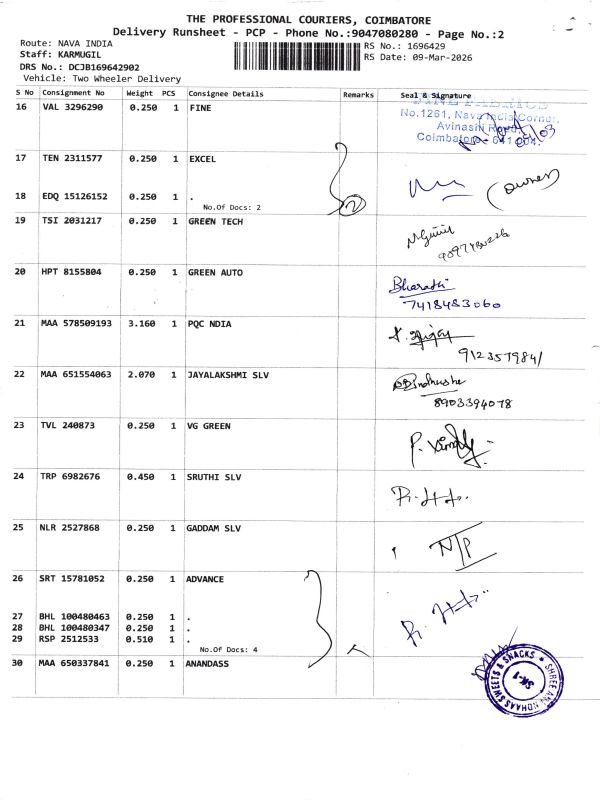 THE PROFESSIONAL COURIERS, COIMBATORE
Delivery Runsheet - PCP - Phone No.:9047080280 - Page No.:2
Route: NAVA INDIA
Staff: KARMUGIL
DRS No.: DCJB169642902
Vehicle: Two Wheeler Delivery
RS No.: 1696429
RS Date: 09-Mar-2026
S No Consignment No Weight PCS Consignee Details Remarks Seal & Signature
16 VAL 3296290 0.250 1 FINE
No.1261, Nava India Corner,
Avinashi Road,
Coimbatore - 641 004.
17 TEN 2311577 0.250 1 EXCEL
(owner)
18 EDQ 15126152 0.250 1 .
No.Of Docs: 2
2
19 TSI 2031217 0.250 1 GREEN TECH
20 HPT 8155804 0.250 1 GREEN AUTO
Bharathi
7418483060
21 MAA 578509193 3.160 1 PQC NDIA
912357984/
22 MAA 651554063 2.070 1 JAYALAKSHMI SLV
8903394078
23 TVL 240873 0.250 1 VG GREEN
24 TRP 6982676 0.450 1 SRUTHI SLV
25 NLR 2527868 0.250 1 GADDAM SLV
N/P
26 SRT 15781052 0.250 1 ADVANCE
27 BHL 100480463 0.250 1 .
28 BHL 100480347 0.250 1 .
29 RSP 2512533 0.510 1 .
No.Of Docs: 4
30 MAA 650337841 0.250 1 ANANDASS
SWEETS & SNACKS
SK-1